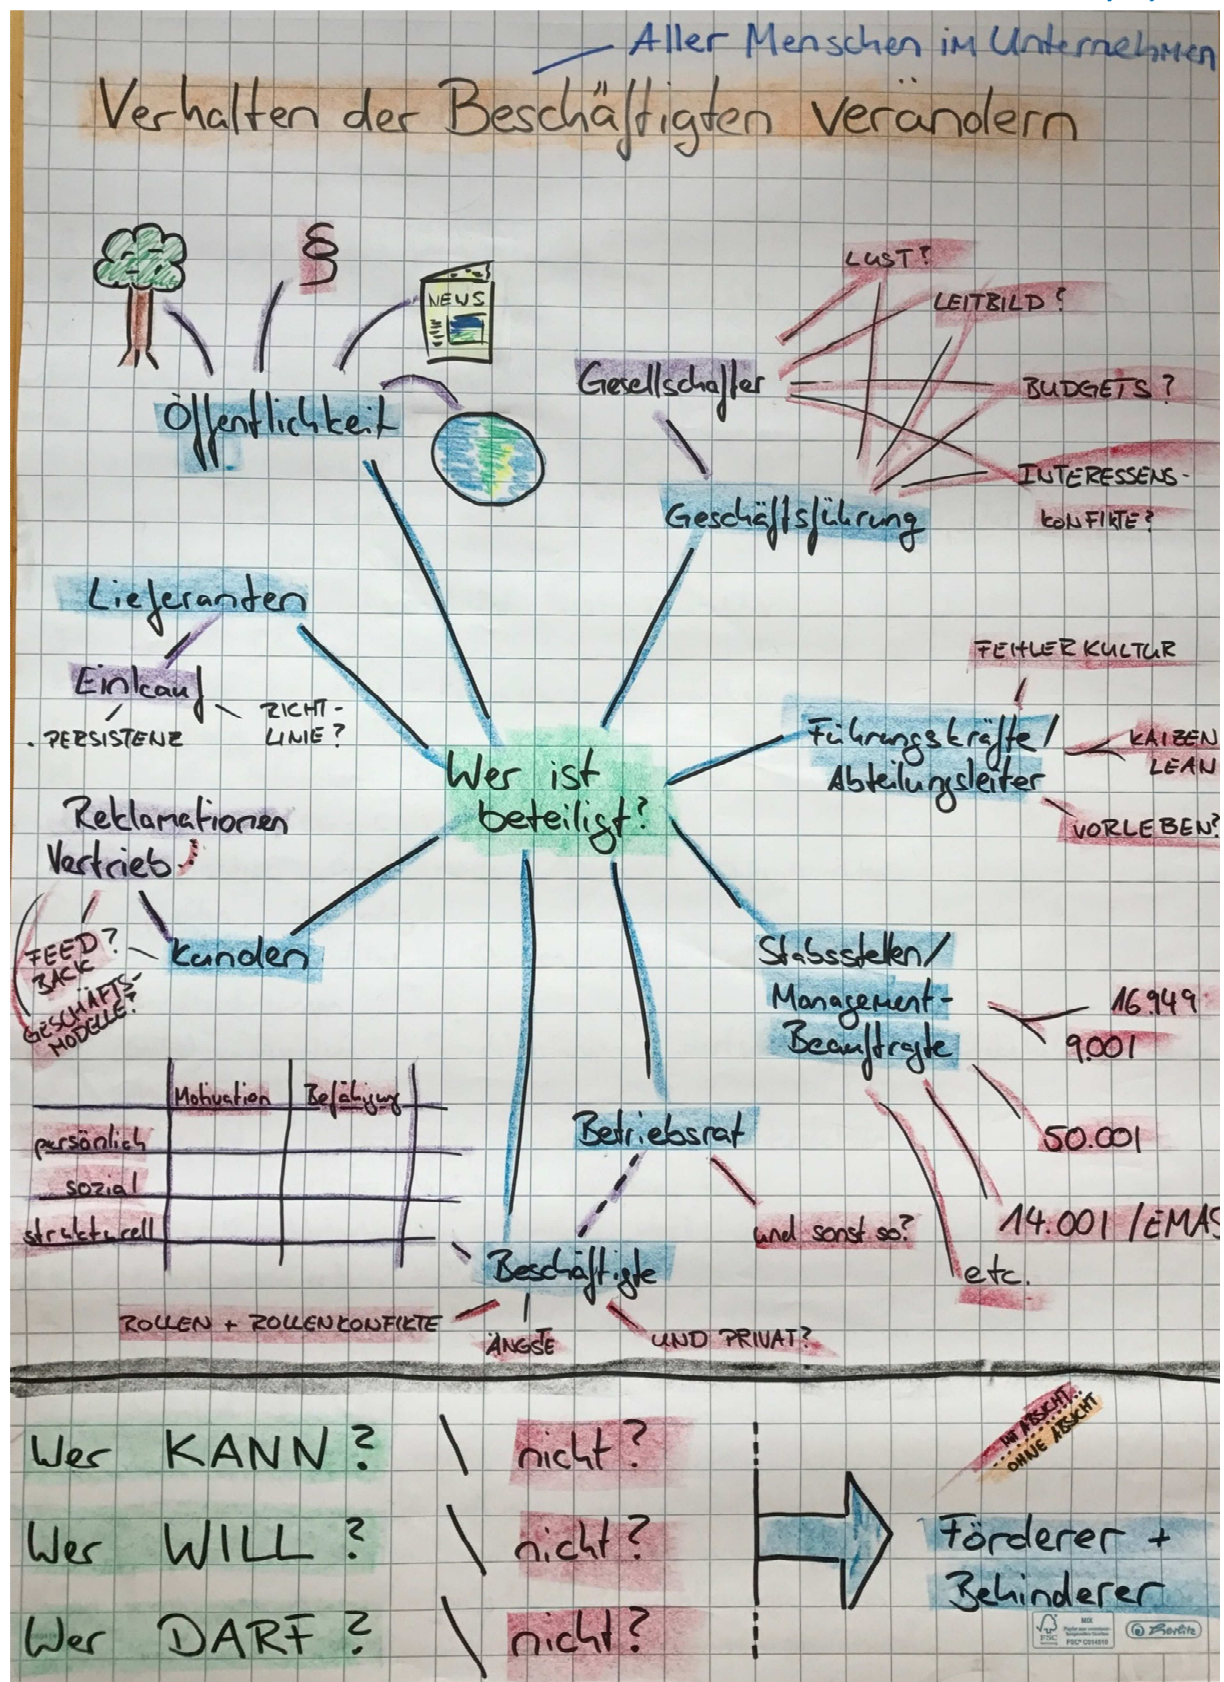 Aller Menschen im Unternehmen
Verhalten der Beschäftigten verändern
§
NEWS
Öffentlichkeit
LUST?
LEITBILD?
Gesellschafter
BUDGETS?
INTERESSENS-
KONFIKTE?
Geschäftsführung
Lieferanten
Einkauf
. PERSISTENZ
RICHT-
LINIE?
FEHLERKULTUR
Führungskräfte/
Abteilungsleiter
KAIZEN
LEAN
VORLEBEN?
Wer ist
beteiligt?
Reklamationen
Vertrieb
Kunden
FEED?
BACK
GESCHÄFTS-
MODELLE?
Stabsstellen/
Management-
Beauftragte
16.949
9.001
50.001
14.001/EMAS
etc.
Motivation Befähigung
persönlich
sozial
strukturell
Betriebsrat
und sonst so?
Beschäftigte
ROLLEN + ROLLENKONFIKTE
ÄNGSTE
UND PRIVAT?
Wer KANN? \ nicht?
Wer WILL? \ nicht?
Wer DARF? \ nicht?
MIT ABSICHT..
OHNE ABSICHT
Förderer +
Behinderer
FSC
MIX
FSC® C014919
Herlitz